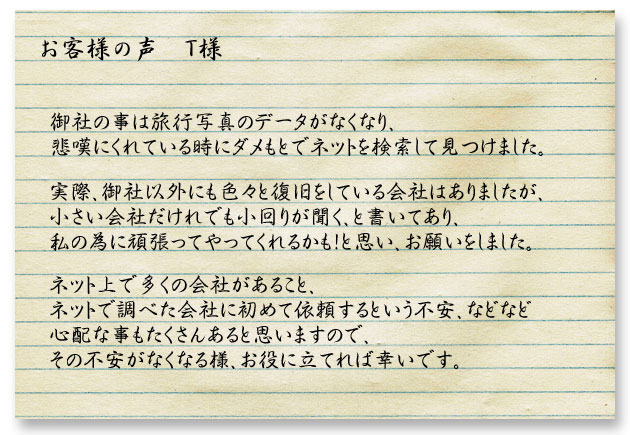 お客様の声　T様
御社の事は旅行写真のデータがなくなり、
悲嘆にくれている時にダメもとでネットを検索して見つけました。
実際、御社以外にも色々と復旧をしている会社はありましたが、
小さい会社だけれでも小回りが聞く、と書いてあり、
私の為に頑張ってやってくれるかも!と思い、お願いをしました。
ネット上で多くの会社があること、
ネットで調べた会社に初めて依頼するという不安、などなど
心配な事もたくさんあると思いますので、
その不安がなくなる様、お役に立てれば幸いです。